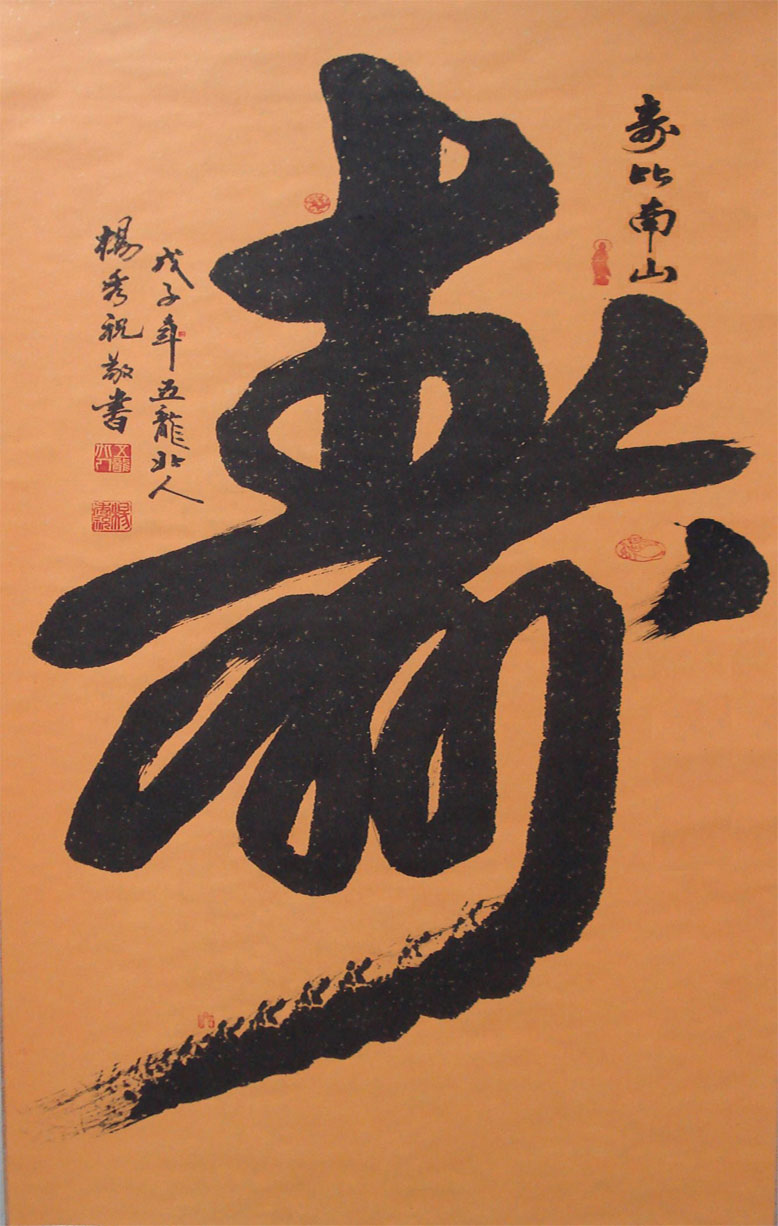 寿比南山
寿
戊子年五龍北人
楊秀祝敬書